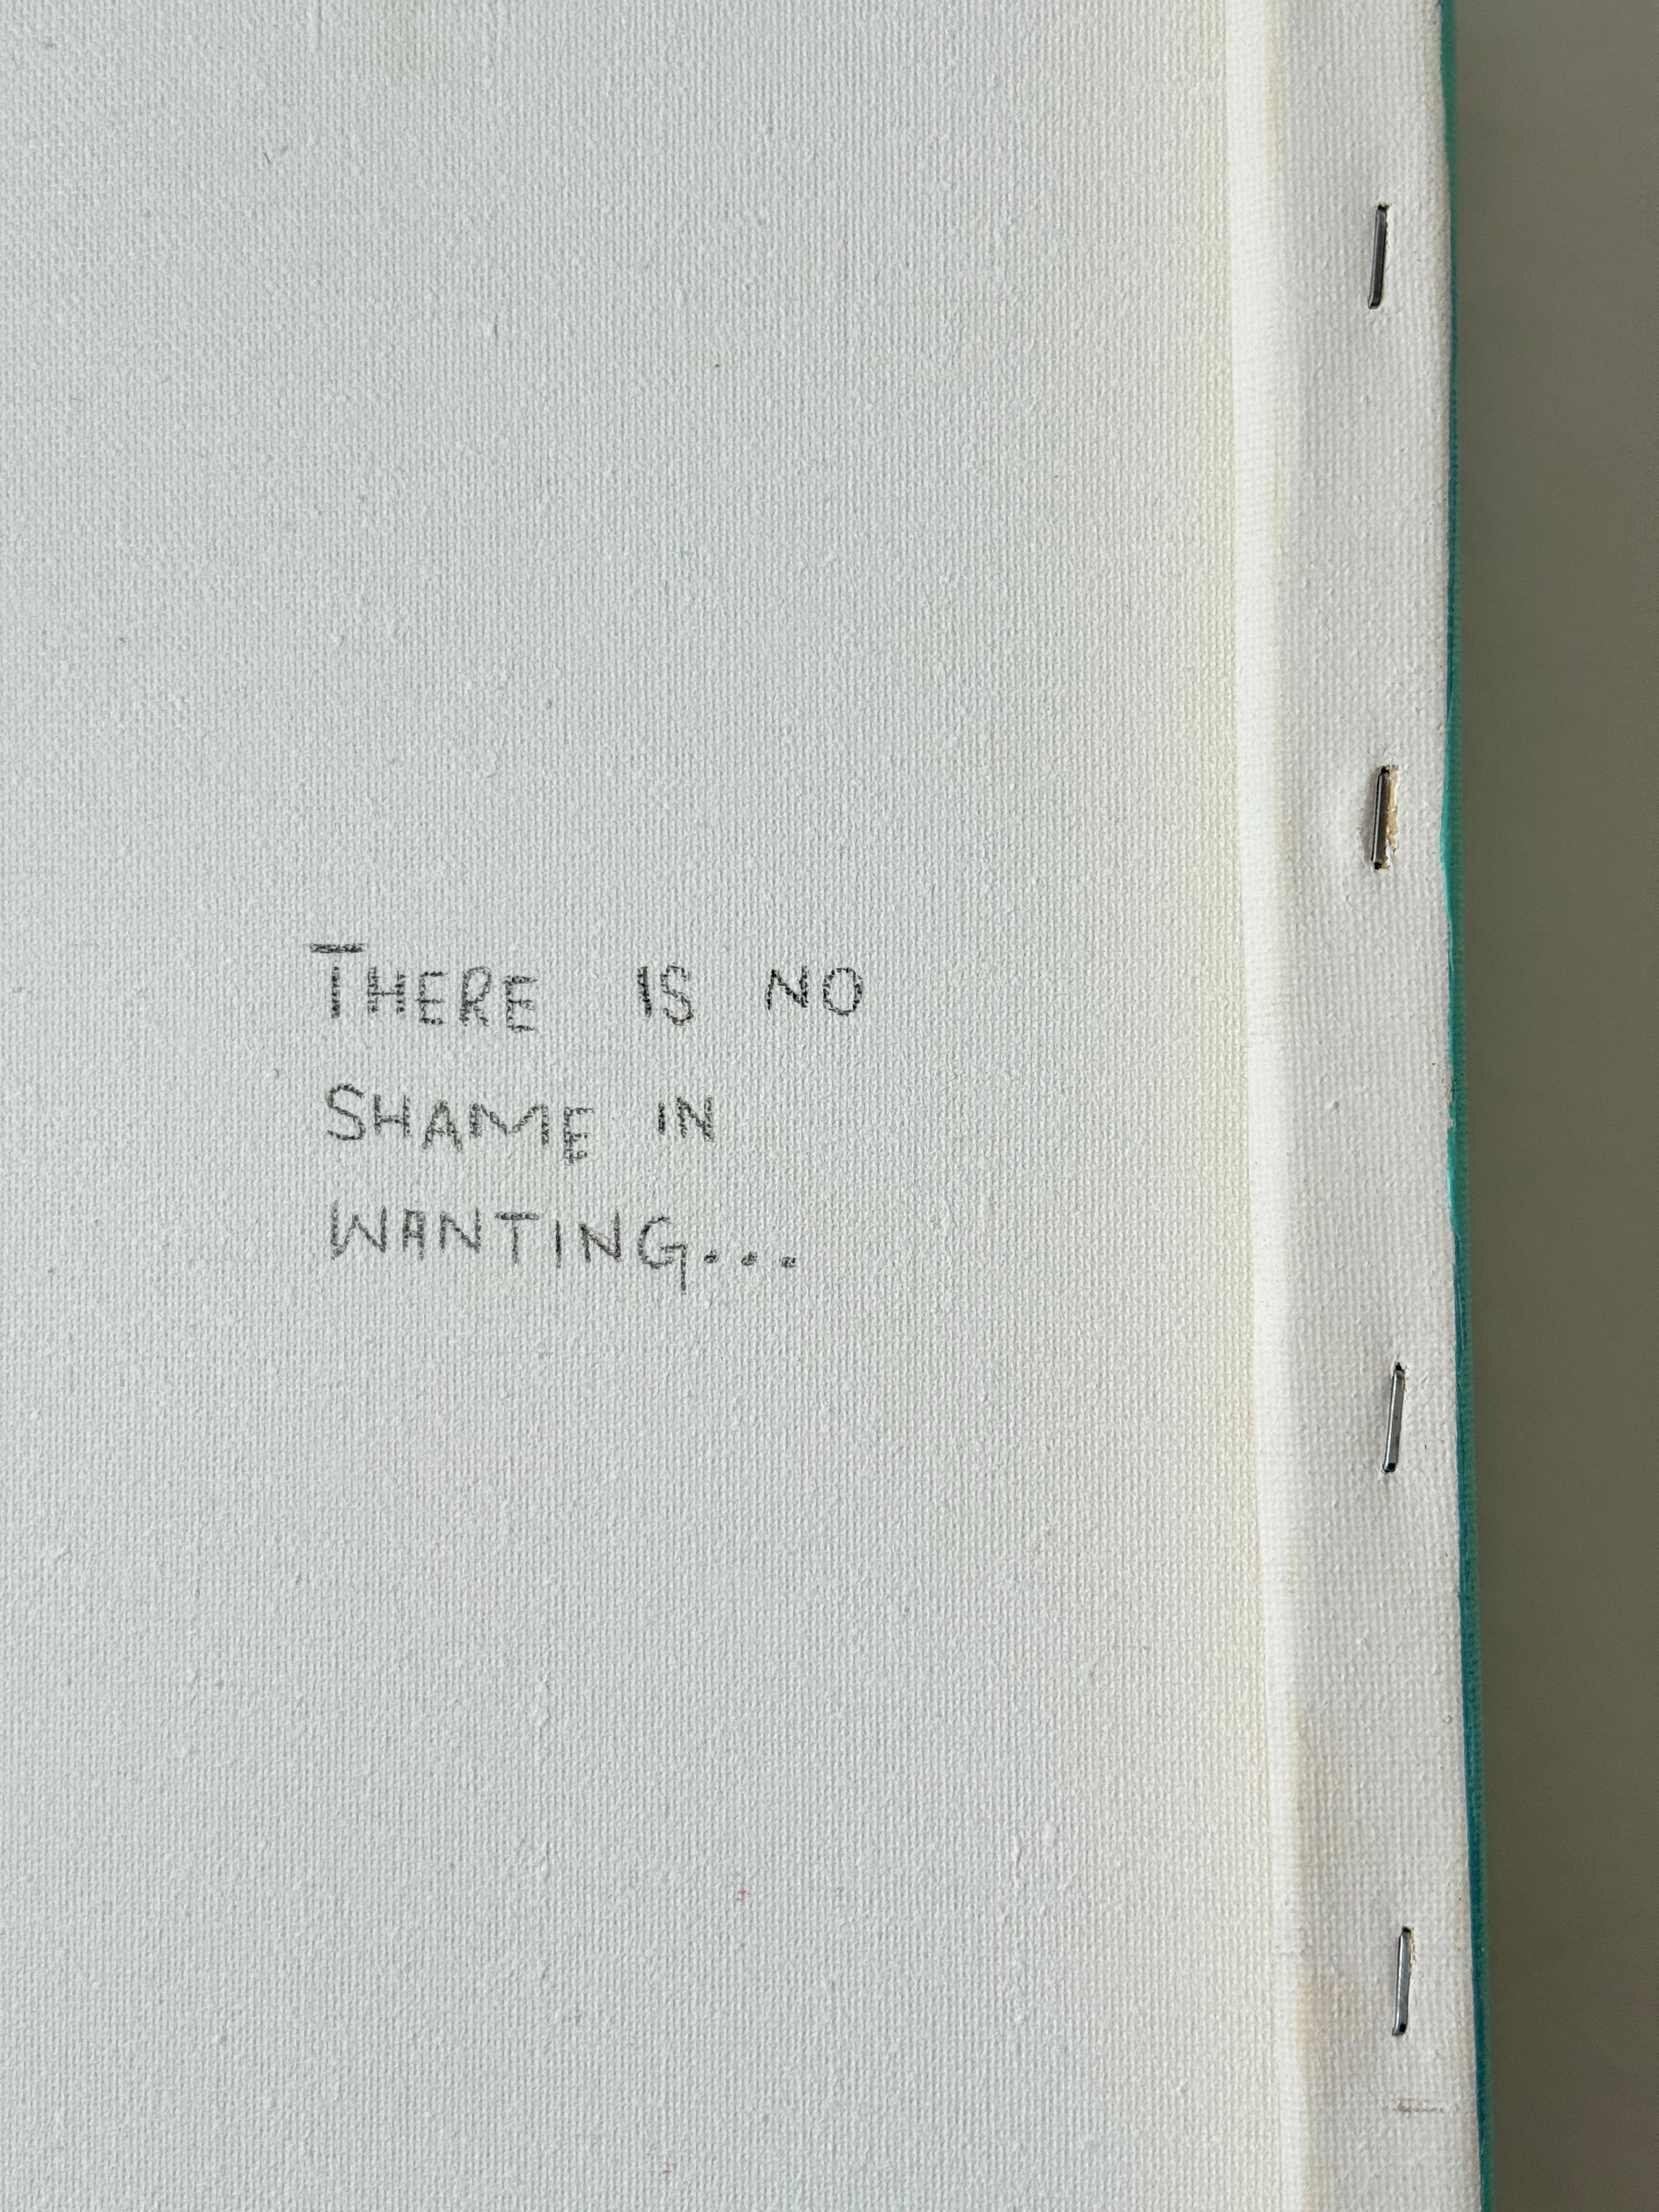 THERE IS NO
SHAME IN
WANTING...